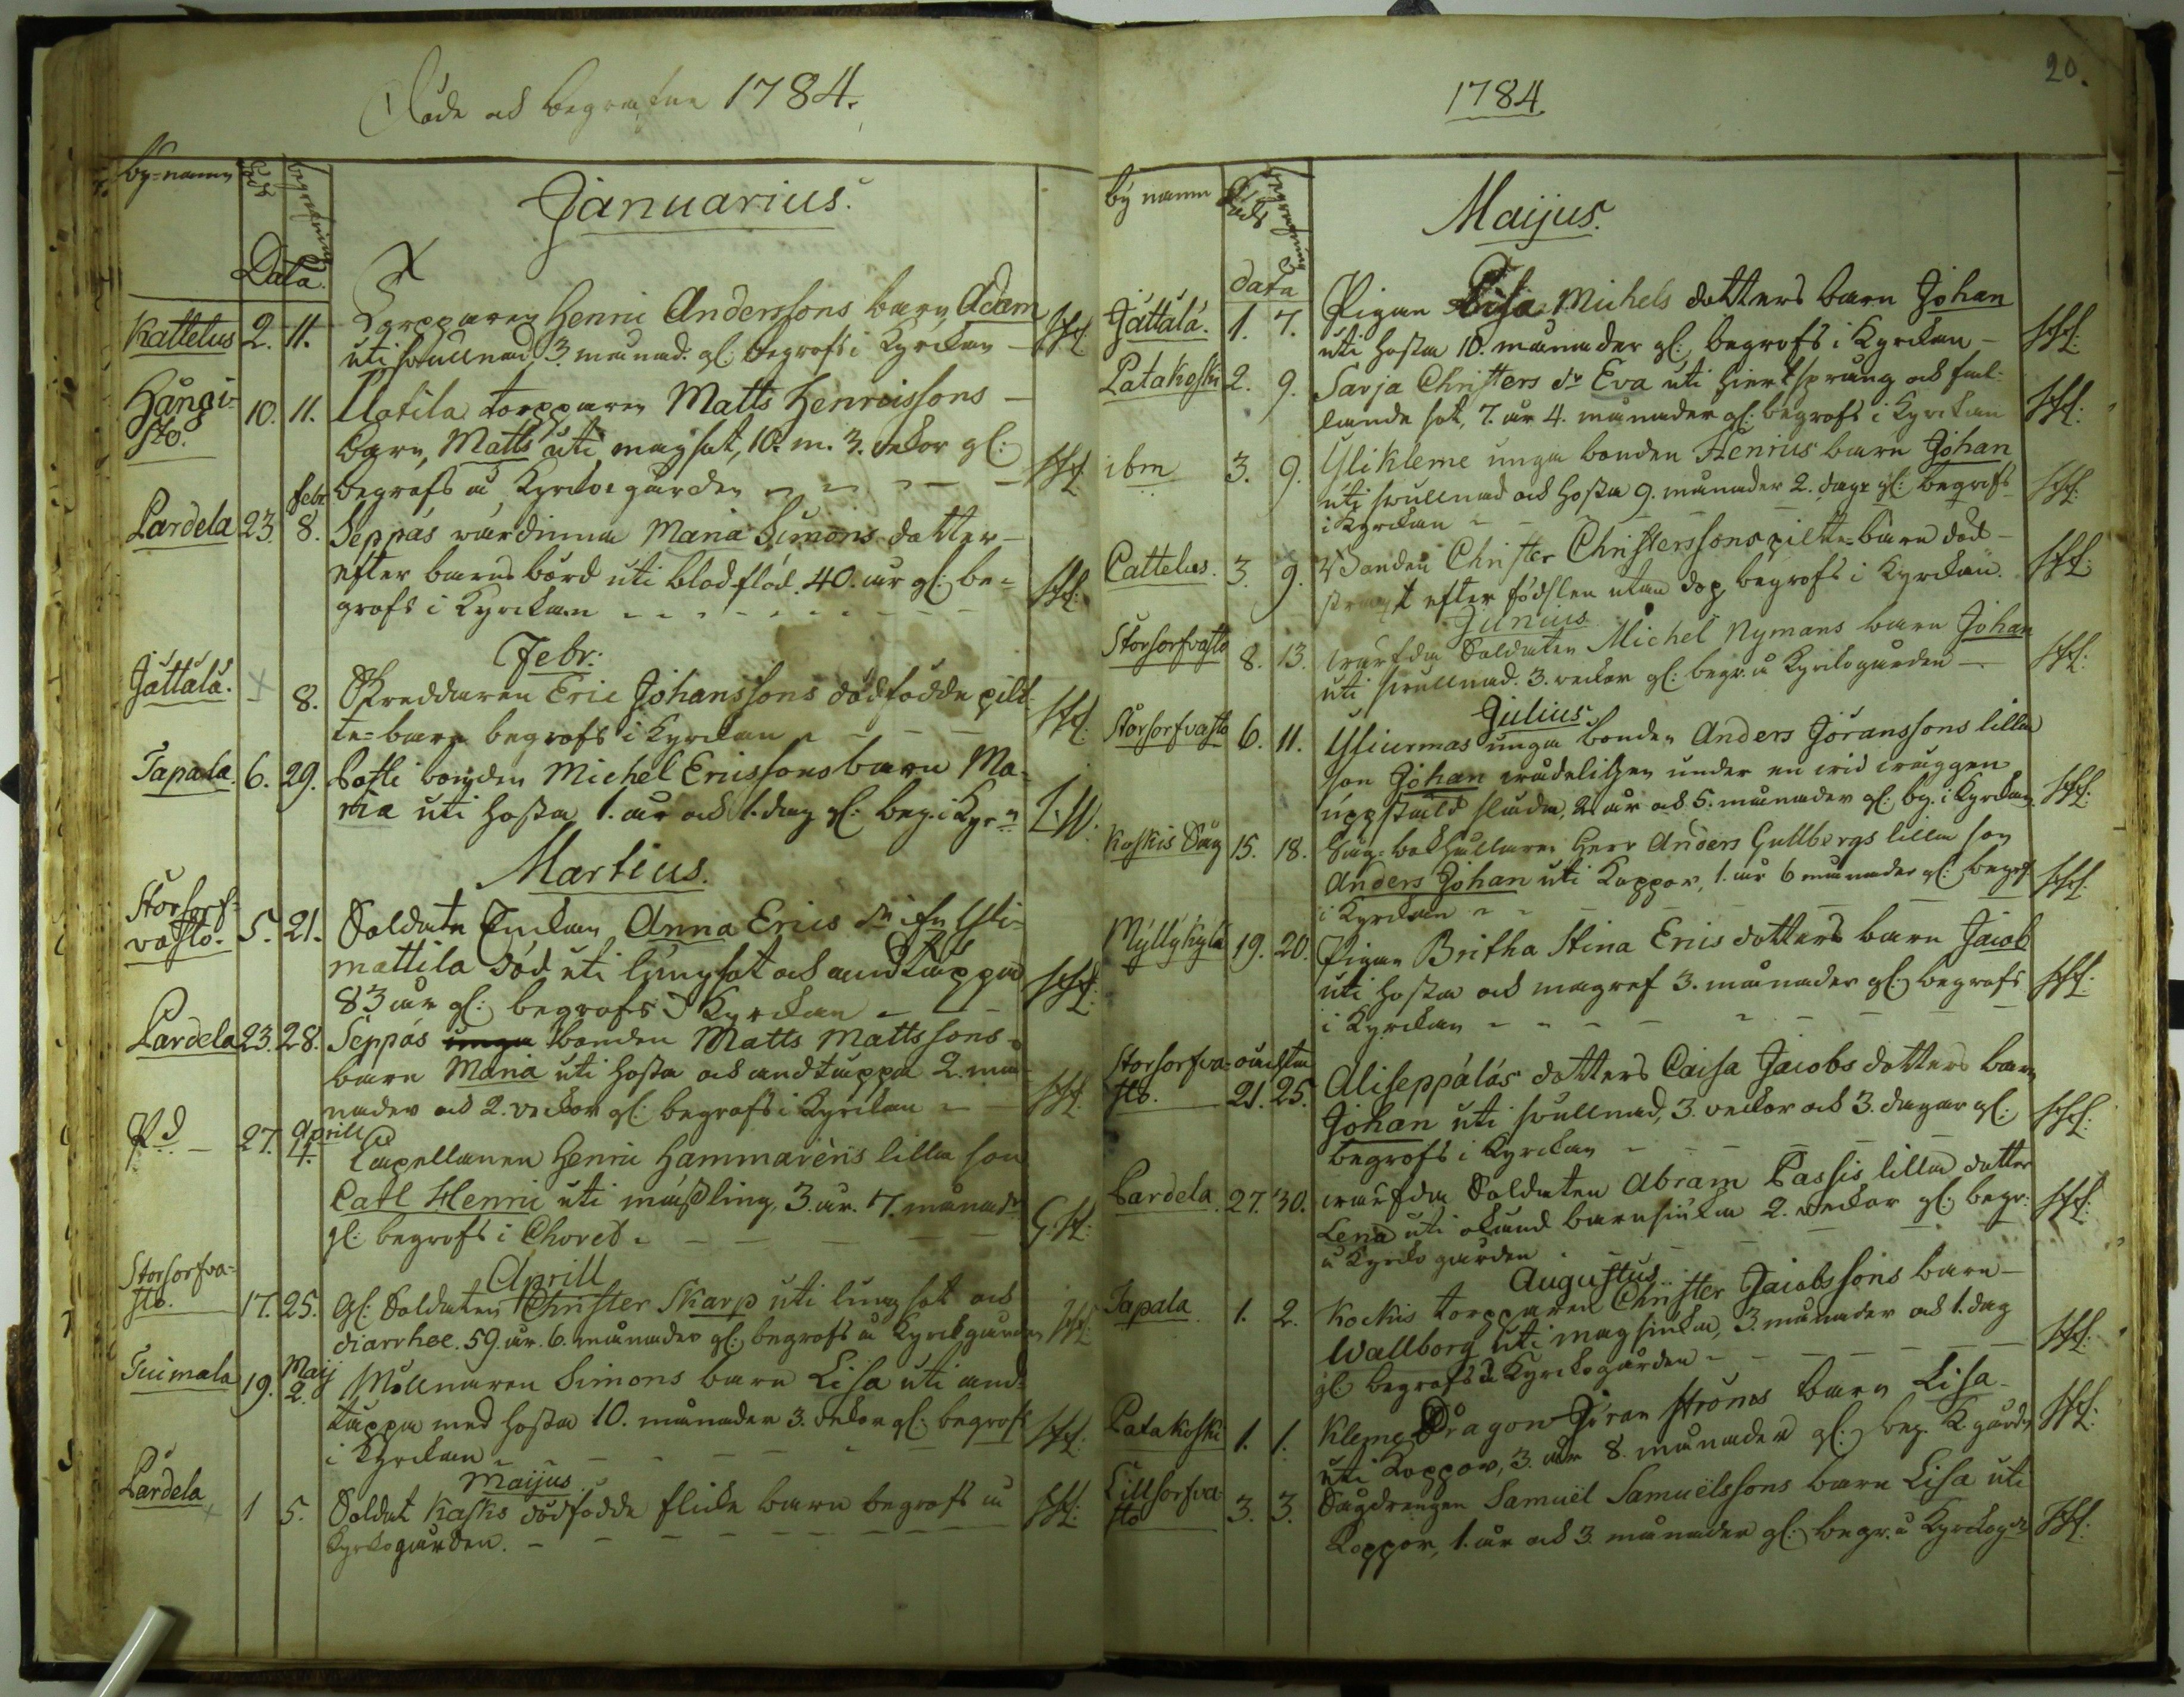 Döde och begrafne 1784.
by-namn
död
begrafning
Data
Januarius.
Kattelus 2. 11. Torpparen Henric Anderssons barn Adam
uti swullnad 3 månad. gl: begrofs i Kyrckan
Hångi-
sto. 10. 11. Ulotila torpparen Matts Henricssons
barn, Matts uti magsot, 10. m. 3. vekor gl:
begrofs å Kyrckogården
febr
Pardela 23. 8. Seppäs wärdinna Maria Simons dotter
efter barnsbörd uti blodflöd. 40. år gl: be-
grofs i Kyrckan
Febr:
Jättälä. 8. Skreddaren Eric Johanssons dödfödde pilt
te-barn begrofs i Kyrckan
Tapala. 6. 29. bonden Michel Ericssons barn Ma-
ria uti hosta 1. år och 1. dag gl: beg. i Kyrn
Martius.
Storsorf-
vasto. 5. 21. Soldate Enckan Anna Erics dr ifrn Yli-
mattila död uti lungsot och andtäppa
83 år gl: begrofs i Kyrckan
Pardela 23. 28. Seppäs unga bonden Matts Mattssons
barn Maria uti hosta och andtäppa 2. må-
nader och 2. veckor gl: begrofs i Kyrckan
Aprill
27. 4. Capellanen Henric Hammarèns lilla son
Carl Henric uti mäßling, 3. år. 7. månadr
gl: begrofs i Choret.
Aprill
Storsorfva-
sto. 17. 25. Gl: Soldaten Christer Skarp uti lungsot och
diarrhoe. 59. år. 6. månader gl: begrofs å Kyrckgården
Maij
Tuimala 19. 2. Möllnaren Simons barn Lisa uti and-
täppa med hosta 10. månader 3. vekor gl: begrofs
i Kyrckan
Maijus
Pardela 1 5. Soldat Kasks dödfödde flicke barn begrofs å
Kyrkogården.
1784.
20.
by namn
död
begrafning
data
Maijus.
Jättälä. 1. 7. Pigan Lisa Michels dotters barn Johan
uti hosta 10. månader gl: begrofs i Kyrckan
Patakoski 2. 9. Sarja Christers dr Eva uti hiertsprång och fal-
lande sot, 7. år 4. månader gl: begrofs i Kyrckan
ibm 3. 9. Ylikleme unga bonden Henrics barn Johan
uti swullnad och hosta 9. månader 2. dagr gl: begrofs
i Kyrckan
Cattelus. 3. 9. Bonden Christer Christerssons pilte-barn död
strax efter födslen utan dop, begrofs i Kyrckan.
Junius
Storsorfvasto 8. 13. wärfda Soldaten Michel Nymans barn Johan
uti swullnad. 3. veckor gl: begr. å Kyrckogården
Julius
Storsorfvasto 6. 11. Yliurmas unga bonden Anders Jöranssons lilla
son Johan wådeligen under en wid wäggen
uppstäld släda, 2 år och 5. månader gl: bg. i Kyrckan
Koskis Såg 15. 18. Såg-bokhållaren Herr Anders Gullbergs lilla son
Anders Johan uti Koppor, 1. år 6 månader gl: begrof
i Kyrckan
Myllykylä 19. 20. Pigan Britha Stina Erics dotters barn Jacob
uti hosta och magref 3. månader gl: begrofs
i Kyrckan
Storsorfva-
sto. 21. 25. Aliseppäläs dotters Caisa Jacobs dotters barn
Johan uti swullnad, 3. veckor och 3. dagar gl:
begrofs i Kyrckan
Pardela 27. 30. wärfda Soldaten Abram Passis lilla dotter
Lena uti okänd barnsiuka 2. veckor gl: begr:
å Kyrcko gården
Augustus
Tapala 1. 2. Kockis torpparen Christer Jacobssons barn
Wallborg uti magsiuka, 3. månader och 1. dag
gl: begrofs å Kyrckogården
Patakoski 1. 1. Kleme Dragon Jöran Ströms barn Lisa
uti Koppor, 3. år 8. månader gl: beg. K. gårdn
Lillsorfva-
sto 3. 3. Sågdrengen Samuel Samuelssons barn Lisa uti
Koppor, 1. år och 3. månader gl: begr. å Kyrckog